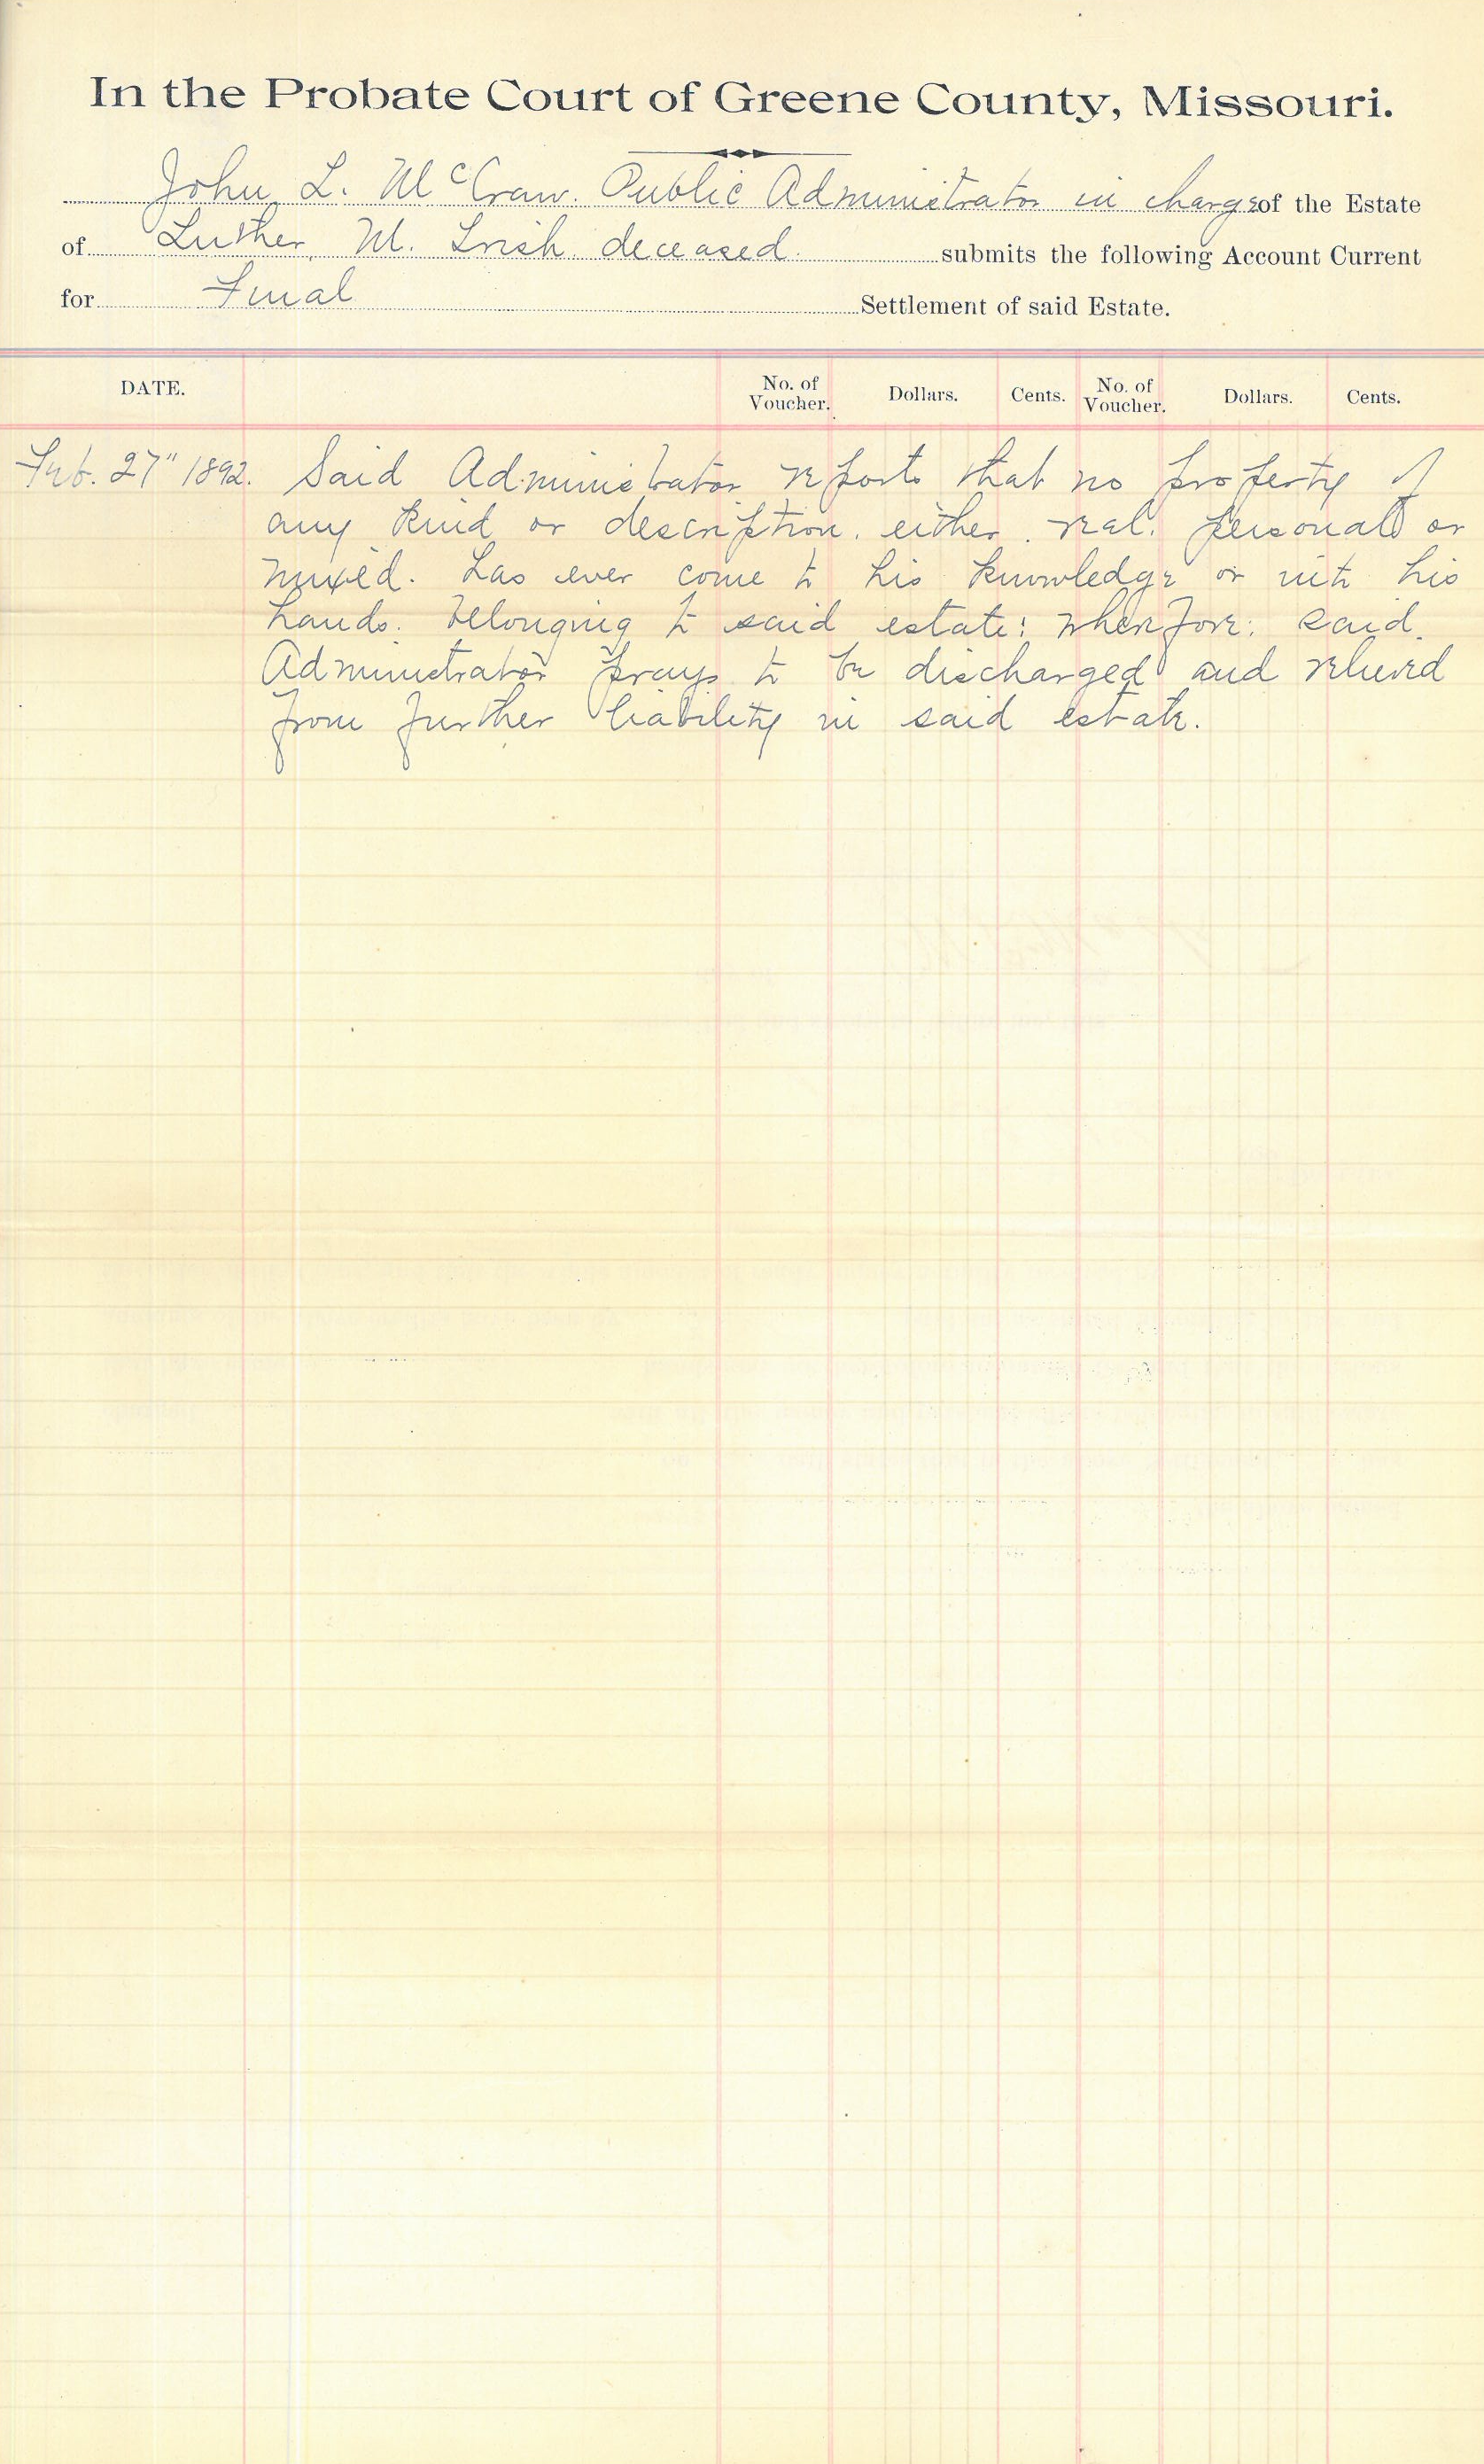 In the Probate Court of Greene County, Missouri.
John L. McCraw. Public Administrator in charge of the Estate
of Luther M. Irish deceased. submits the following Account Current
for Final Settlement of said Estate.
DATE. No. of Voucher. Dollars. Cents. No. of Voucher. Dollars. Cents.
Feb. 27" 1892. Said Administrator reports that no property of
any kind or description. either. real. personal or
mixed. has ever come to his knowledge or into his
hands. belonging to said estate: wherefore: said
Administrator prays to be discharged and relieved
from further liability in said estate.